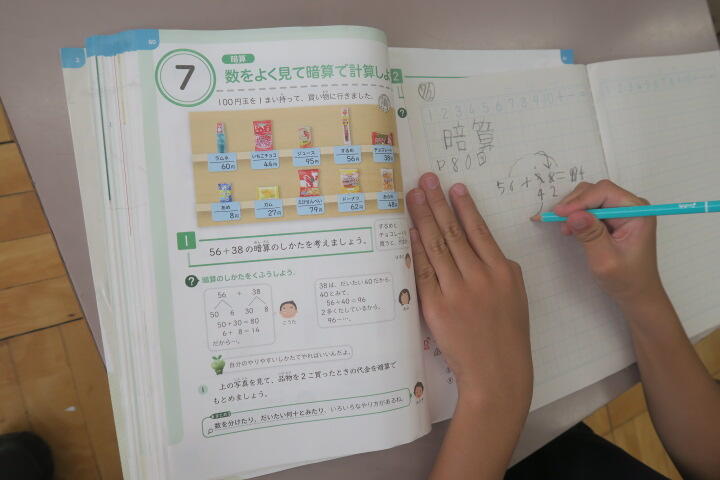 80
7
暗算
数をよく見て暗算で計算しよ
100円玉を1まい持って、買い物に行きました。
ラムネ
60円
いちごチョコ
44円
ジュース
95円
するめ
56円
チョコレート
38円
あめ
8円
ガム
27円
えびせんべい
79円
ドーナツ
62円
48円
1
56+38の暗算のしかたを考えましょう。
するめと
チョコレート
買うと、
? 暗算のしかたをくふうしよう。
56 + 38
50 6 30 8
50+30=80
6+ 8=14
だから…。
こうた
38は、だいたい40だから、
40とみて、
56+40=96
2多くたしているから、
96-…。
自分のやりやすいしかたでやればいいんだよ。
1 上の写真を見て、品物を2こ買ったときの代金を暗算で
もとめましょう。
まとめ
数を分けたり、だいたい何十とみたり、いろいろなやり方があるね。
2
?
1 2 3 4 5 6 7 8 9 10
暗算
P80
56+
4 2